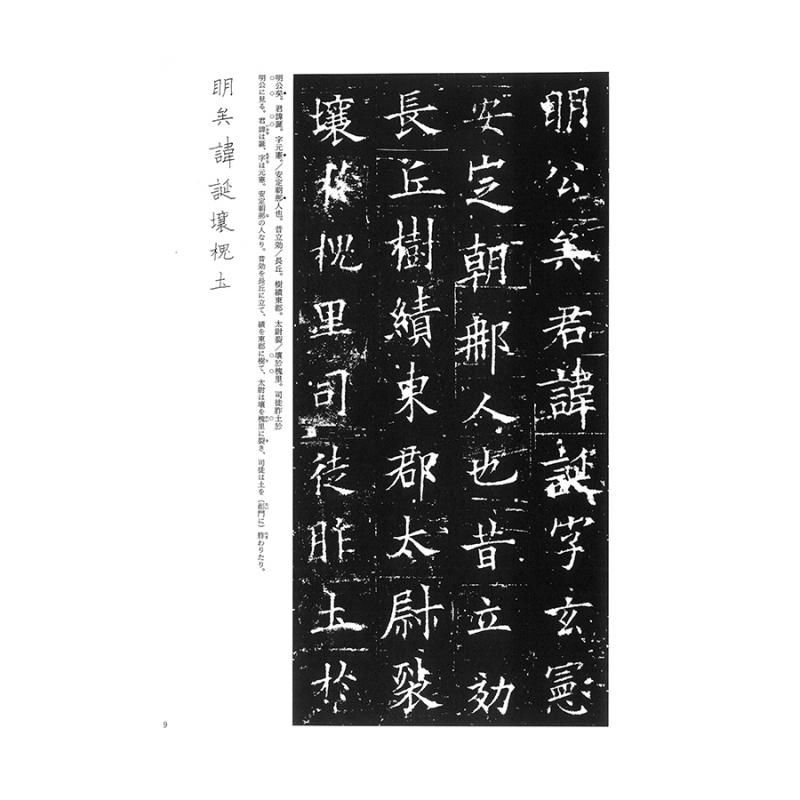 明公矣君諱誕字玄憲
安定朝那人也昔立効
長丘樹績東郡太尉裂
壤於槐里司徒胙土於
明公矣。君諱誕。字元憲。／安定朝那人也。昔立効／長丘。樹績東郡。太尉裂／壤於槐里。司徒胙土於
明公に見る。君諱は誕、字は元憲。安定朝那の人なり。昔効を長丘に立て、績を東郡に樹て、太尉は壤を槐里に裂き、司徒は土を（門に）胙わりたり。
明矣諱誕壤槐土
9